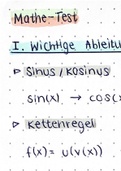 Mathe-Test
I. Wichtige Ableitu
▷ Sinus/Kosinus
sin(x) → cos(x
▷ Kettenregel
f(x) = u(v(x))